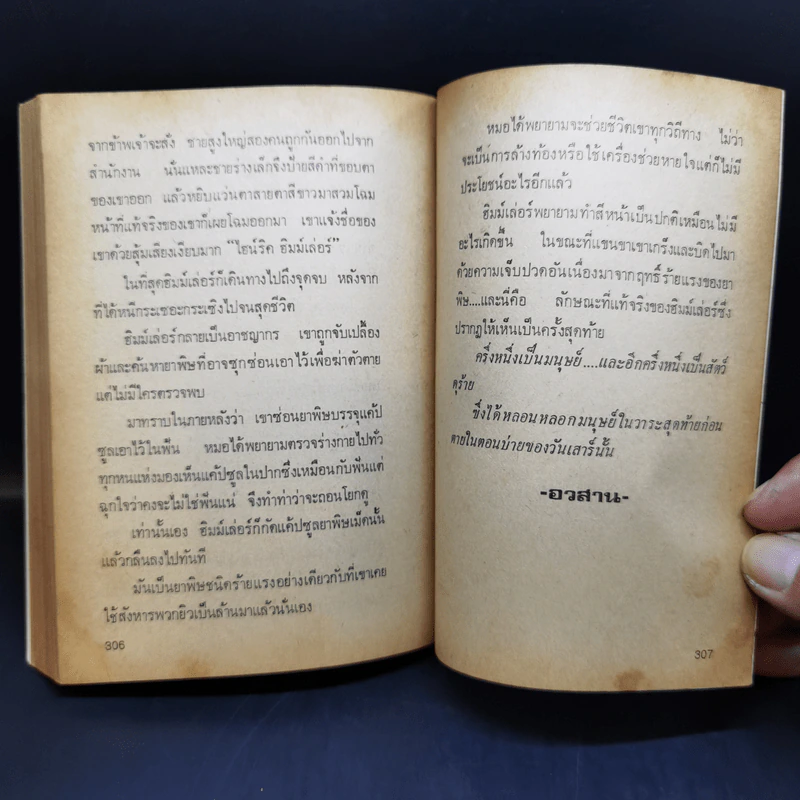 จากข้าพเจ้าจะสั่ง ชายสูงใหญ่สองคนถูกกันออกไปจาก
สำนักงาน นั่นแหละชายร่างเล็กจึงป้ายสีดำที่ขอบตา
ของเขาออก แล้วหยิบแว่นตาสายตาสีขาวมาสวมโฉม
หน้าที่แท้จริงของเขาก็เผยโฉมออกมา เขาแจ้งชื่อของ
เขาด้วยสุ้มเสียงเงียบมาก "ไฮน์ริค ฮิมม์เล่อร์"
ในที่สุดฮิมม์เล่อร์ก็เดินทางไปถึงจุดจบ หลังจาก
ที่ได้หนีกระเซอะกระเซิงไปจนสุดชีวิต
ฮิมม์เล่อร์กลายเป็นอาชญากร เขาถูกจับเปลื้อง
ผ้าและค้นหายาพิษที่อาจซุกซ่อนเอาไว้เพื่อฆ่าตัวตาย
แต่ไม่มีใครตรวจพบ
มาทราบในภายหลังว่า เขาซ่อนยาพิษบรรจุแค้ป
ซูลเอาไว้ในฟัน หมอได้พยายามตรวจร่างกายไปทั่ว
ทุกหนแห่งมองเห็นแค้ปซูลในปากซึ่งเหมือนกับฟันแต่
ฉุกใจว่าคงจะไม่ใช่ฟันแน่ จึงทำท่าว่าจะถอนโยกดู
เท่านั้นเอง ฮิมม์เล่อร์ก็กัดแค้ปซูลยาพิษเม็ดนั้น
แล้วกลืนลงไปทันที
มันเป็นยาพิษชนิดร้ายแรงอย่างเดียวกับที่เขาเคย
ใช้สังหารพวกยิวเป็นล้านมาแล้วนั่นเอง
306
หมอได้พยายามจะช่วยชีวิตเขาทุกวิถีทาง ไม่ว่า
จะเป็นการล้างท้องหรือใช้เครื่องช่วยหายใจแต่ก็ไม่มี
ประโยชน์อะไรอีกแล้ว
ฮิมม์เล่อร์พยายามทำสีหน้าเป็นปกติเหมือนไม่มี
อะไรเกิดขึ้น ในขณะที่แขนขาเขาเกร็งและบิดไปมา
ด้วยความเจ็บปวดอันเนื่องมาจากฤทธิ์ร้ายแรงของยา
พิษ....และนี่คือ ลักษณะที่แท้จริงของฮิมม์เล่อร์ซึ่ง
ปรากฏให้เห็นเป็นครั้งสุดท้าย
ครึ่งหนึ่งเป็นมนุษย์....และอีกครึ่งหนึ่งเป็นสัตว์
ดุร้าย
ซึ่งได้หลอนหลอกมนุษย์ในวาระสุดท้ายก่อน
ตายในตอนบ่ายของวันเสาร์นั้น
-อวสาน-
307